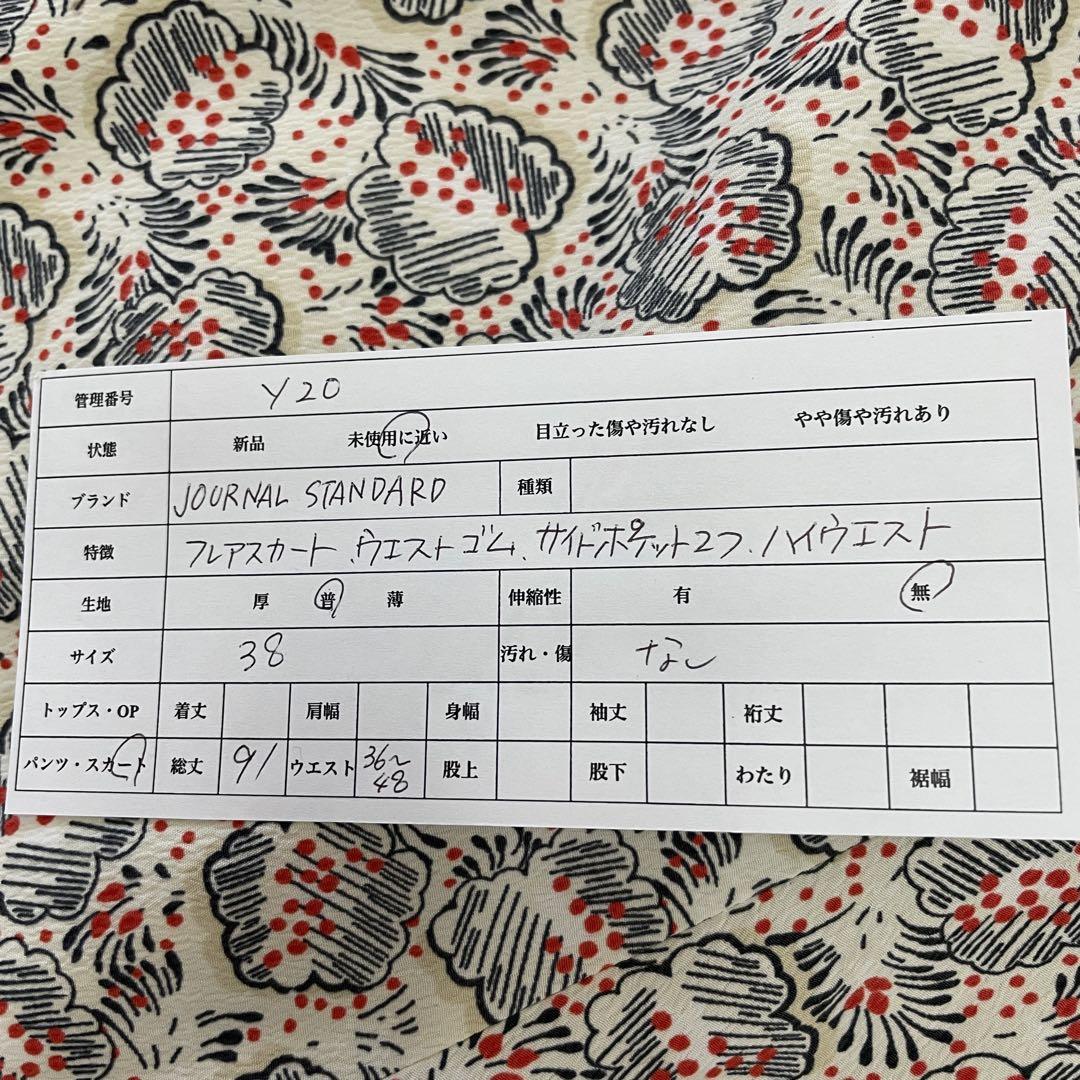 管理番号 Y20
状態 新品 未使用に近い 目立った傷や汚れなし やや傷や汚れあり
ブランド JOURNAL STANDARD 種類
特徴 フレアスカート、ウエストゴム、サイドポケット2つ、ハイウエスト
生地 厚 普 薄 伸縮性 有 無
サイズ 38 汚れ・傷 なし
トップス・OP 着丈 肩幅 身幅 袖丈 裄丈
パンツ・スカート 総丈 91 ウエスト 36〜48 股上 股下 わたり 裾幅